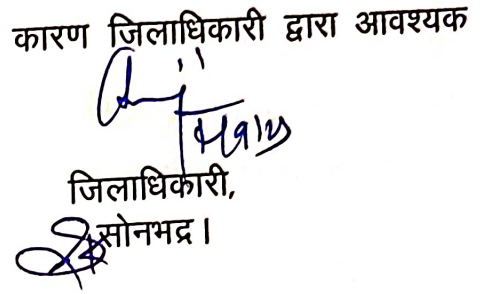 कारण जिलाधिकारी द्वारा आवश्यक
जिलाधिकारी,
सोनभद्र।